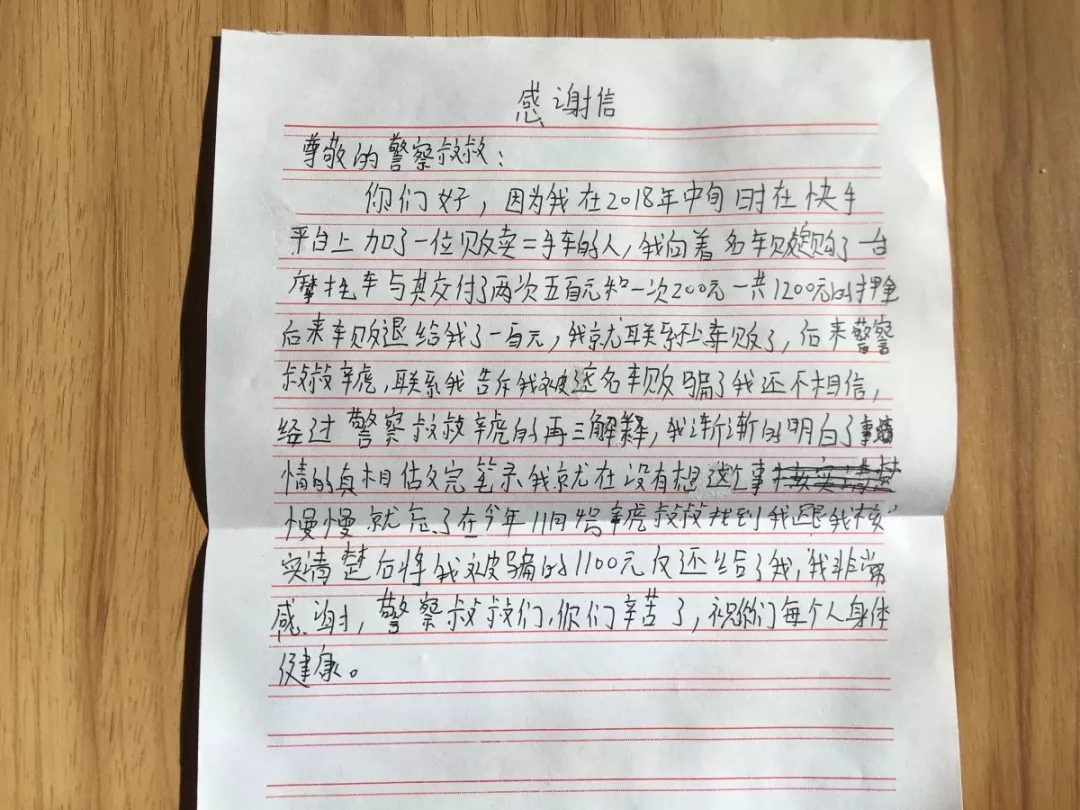 感谢信
尊敬的警察叔叔：
你们好，因为我在2018年中旬时在快手
平台上加了一位贩卖二手车的人，我向着名车贩购了一台
摩托车与其交付了两次五百元和一次200元一共1200元的押金
后来车贩退给我了一百元，我就联系不上车贩了，后来警察
叔叔辛虎，联系我告斥我被这名车贩骗了我还不相信，
经过警察叔叔辛虎的再三解释，我渐渐的明白了事
情的真相估文完笔录我就在没有想这个事
慢慢就忘了在今年11月辛虎叔叔找到我跟我核
实清楚后将我被骗的1100元反还给了我，我非常
感谢，警察叔叔们，你们辛苦了，祝你们每个人身体
健康。